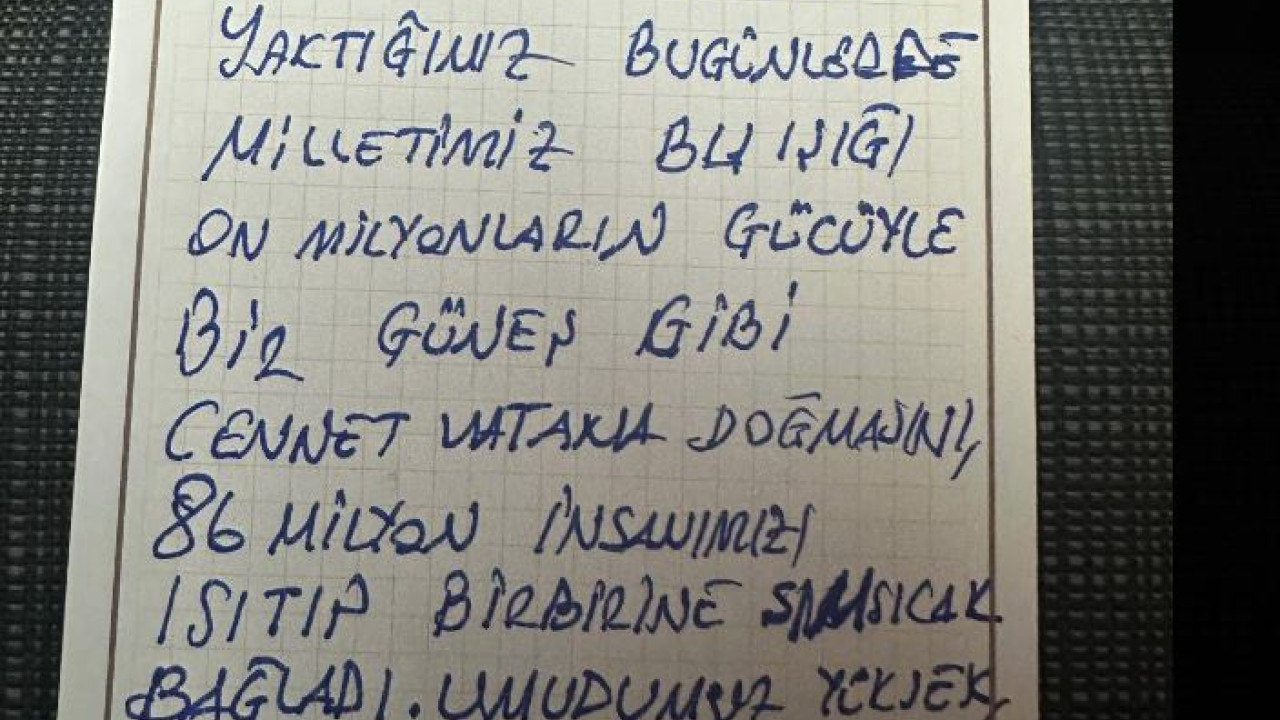 YAKTIĞIMIZ BUGÜNLERDE
MİLLETİMİZ BU IŞIĞI
ON MİLYONLARIN GÜCÜYLE
BİR GÜNEŞ GİBİ
CENNET VATANA DOĞMASINI,
86 MİLYON İNSANIMIZI
ISITIP BİRBİRİNE SIMSICAK
BAĞLADI. UMUDUMUZ YÜKSEK,